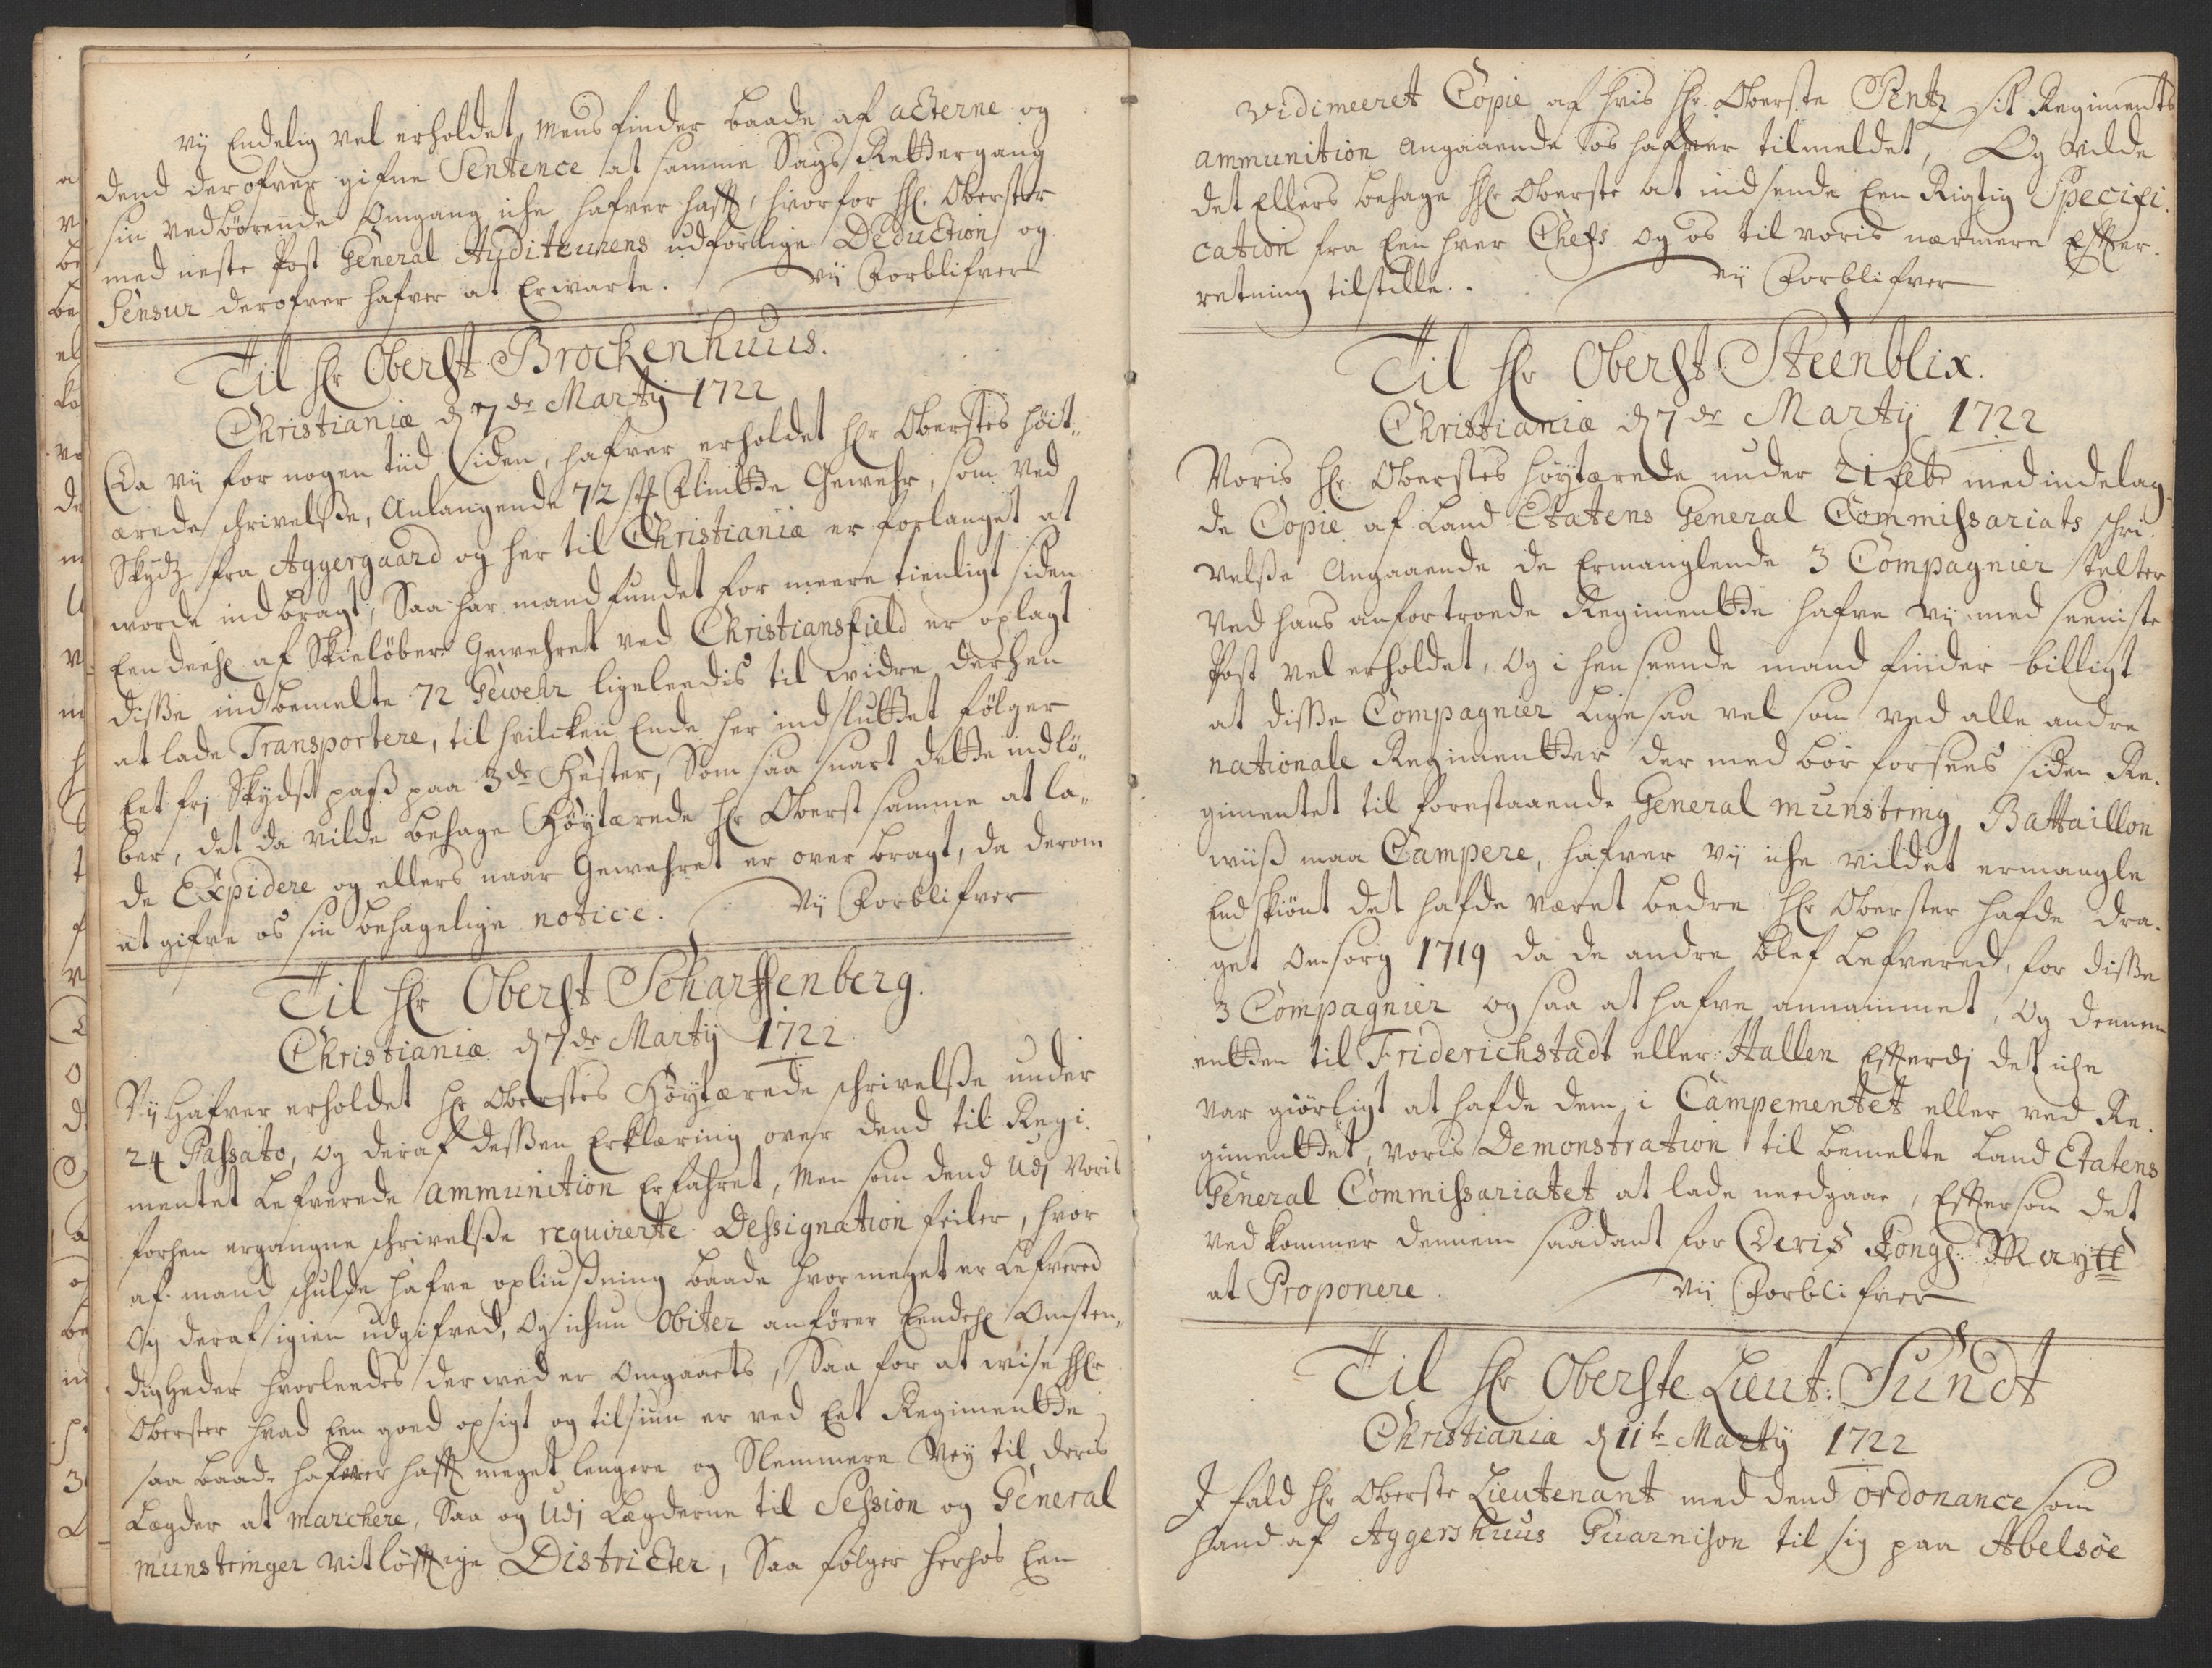 vÿ Endelig vel erholdet, mens finder baade af acterne og
dend derofver gifne Sentence at samme Sags Rettergang
sin vedbörende Omgang iche hafver hafft, hvorfor hl. Oberster
med neste Post General Auditeurens udförlige Deduction og
Sensur derofver hafver at Erwarte. vÿ Forblifver
Til hr Oberst Brockenhuus.
Christiania d 7de Martÿ 1722
Da vÿ for nogen tiid siden, hafver erholdet hr Oberstes höit„
ærede schrivelsse, Anlangende 72 st Flintte Gewehr, som ved
Skydz fra Aggergaard og her til Christiania er forlanget at
worde ind bragt, Saa har mand fundet for meere tienligt siden
Een deehl af Skielöber Gewehret ved Christiansfield er oplagt
disse indbemelte 72 Gewehr ligeleedis til widre derhen
at lade Transportere, til hvilcken Ende her indsluttet fölger
Eet frj Skydss pass paa 3de Hester, Som saa snart dette indlö„
ber, det da vilde behage Höytærede hr Oberst samme at la„
de Expidere og ellers naar Gewehret er over bragt, da derom
at gifve os sin behagelige notice. Vÿ Forblifver
Til hr Oberst Scharffenberg.
Christiania d 7de Martÿ 1722
Vÿ Hafver erholdet hr Oberstes Höytærede schrivelsse under
24 Passato, og deraf dessen Erklæring over dend til Regi.
mentet Lefverede ammunition Erfahret, Men som dend Udj Voris
forhen ergangne schrivelsse requirerte Dessignation feiler, hvor
af mand schulde hafve opliussning baade hvor meget er Lefvered
Og deraf igien udgifved, Og ichun Obiter anförer Eendehl Omsten„
digheder hvorleedes derwed er Omgaaets, Saa for at wise hr
Oberster hvad Een goed opsigt og tilsiun er ved Eet Regimentte
saa baade hafver hafft meget lengere og Slemmere Vej til deris
Lægder at marchere, Saa og Udj Lægderne til Session og General
munstringer vitlöfftige Districter, Saa fölger herhos Een
vidimeeret Copie af hvis hr Oberste Pentz sit Regiments
ammunition angaaende os hafver tilmeldet, Og vilde
det Ellers behage hr Oberste at indsende Een Rigtig Specifi.
cation fra Een hver Chefs og os til voris nærmere Effter.
retning tilstille. vÿ Forblifver
Til hr Oberst Steenblix.
Christiania d 7de Martÿ 1722
Voris hr Oberstes höytærede under 21 feb med indelag
de Copie af Land Etatens General Commissariats schri.
velsse Angaaende de Ermanglende 3 Compagnier telter
Ved hans anfortroede Regimentte hafve vÿ med seeniste
Post vel erholdet, og i henseende mand finder billigt
at disse Compagnier Lige saa vel som ved alle andre
nationale Regimentter der med bör forsees siden Re.
gimentet til forestaaende General munstring Battaillon
wiiss maa Campere, hafver vÿ iche vildet ermangle
End skiönt det hafde været bedre hr Oberster hafde dra.
get omsorg 1719 da de andre blef Lefvered, for disse
3 Compagnier og saa at hafve annammet, og dennem
entten til Friderichstadt eller Hallen Effterdj det iche
var giörligt at hafde dem i Campementet eller ved Re.
gimenttet, voris Demonstration til bemelte Land Etatens
General Commissariatet at lade needgaae, Efftersom det
vedkommer dennem saadant for Deris Kongl: Maytt
at Proponere. Vii Forblifver
Til hr Oberste Lieut: Sundt
Christiania d 11te Martÿ 1722
I fald hr Oberste Lieutenant med dend ordonance som
hand af Aggershuus Guarnison til sig paa Abelsöe